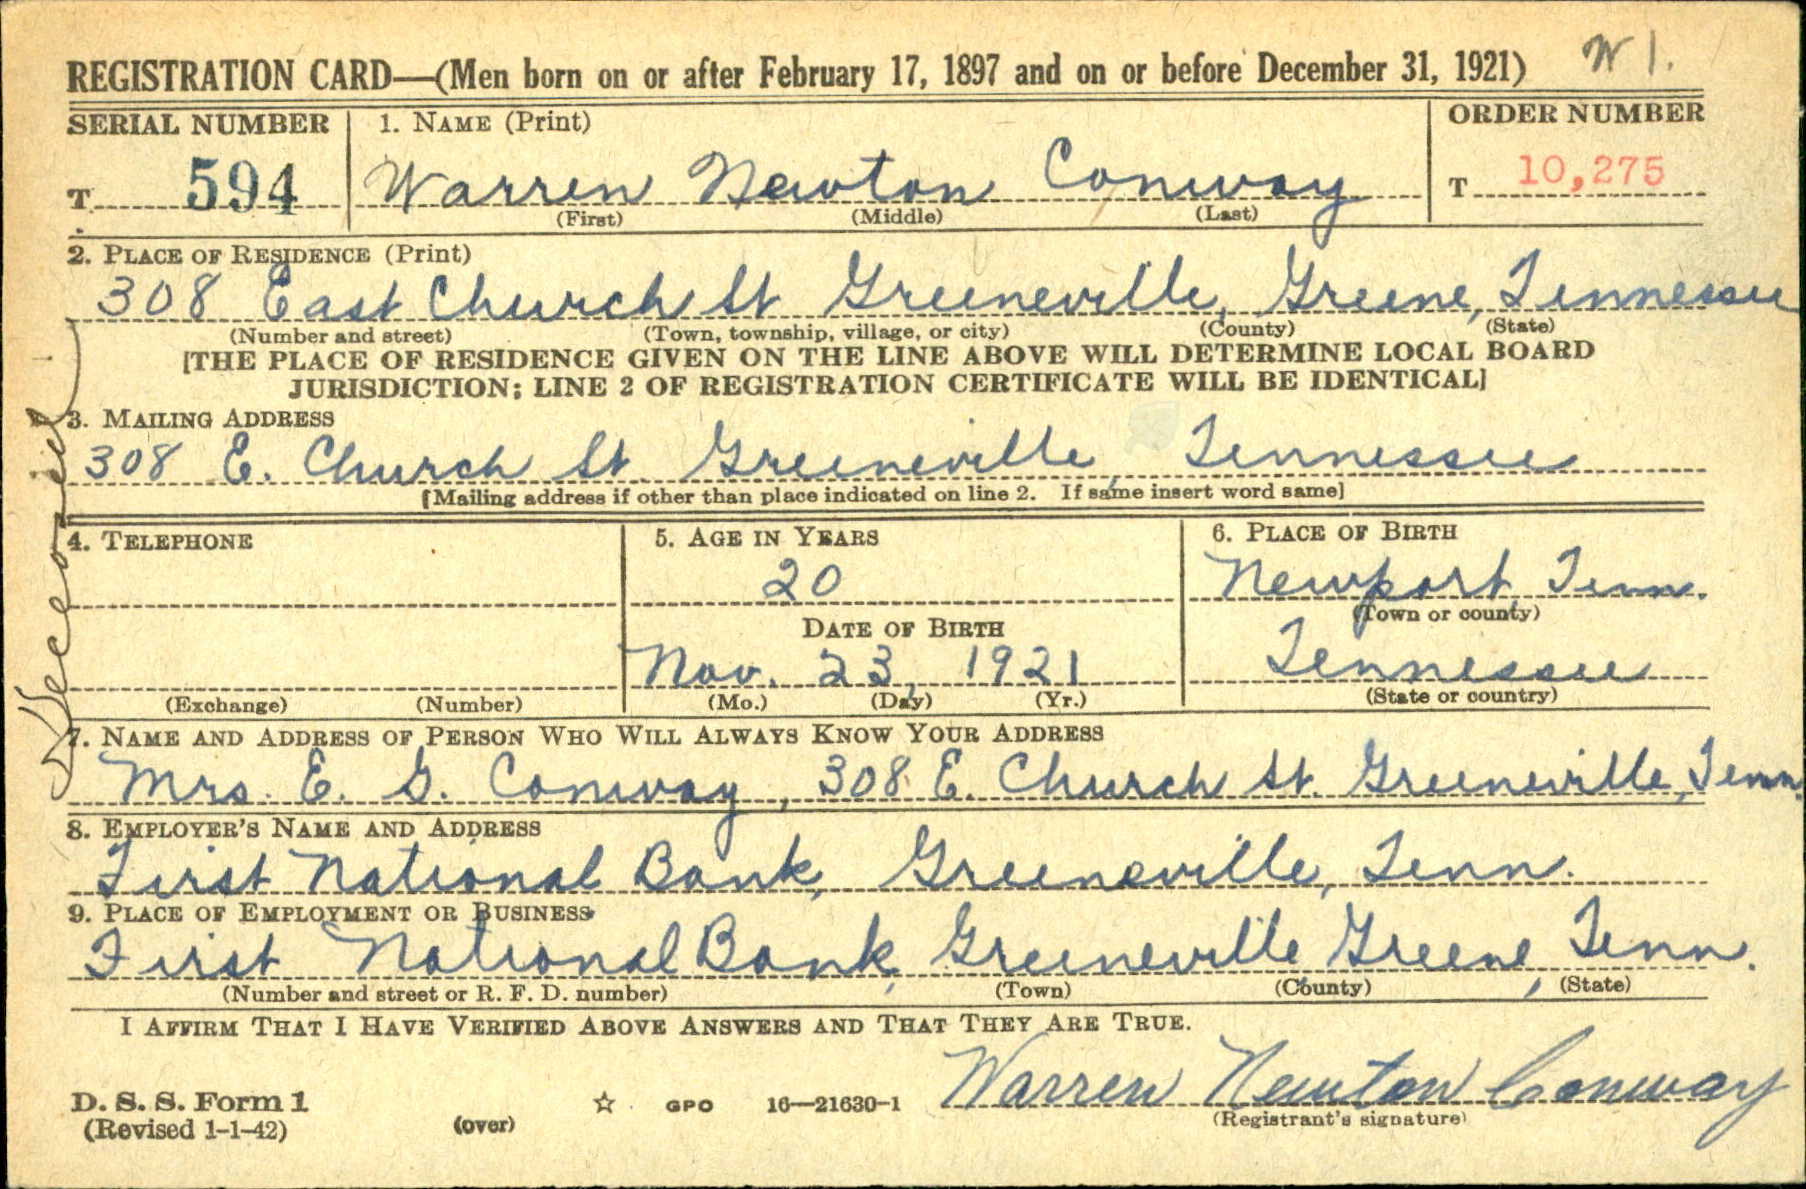 W 1.
REGISTRATION CARD—(Men born on or after February 17, 1897 and on or before December 31, 1921)
SERIAL NUMBER 1. NAME (Print) ORDER NUMBER
T 594 Warren Newton Conway T 10,275
(First) (Middle) (Last)
2. PLACE OF RESIDENCE (Print)
308 East Church St Greeneville, Greene, Tennessee
(Number and street) (Town, township, village, or city) (County) (State)
[THE PLACE OF RESIDENCE GIVEN ON THE LINE ABOVE WILL DETERMINE LOCAL BOARD
JURISDICTION; LINE 2 OF REGISTRATION CERTIFICATE WILL BE IDENTICAL]
Deceased
3. MAILING ADDRESS
308 E. Church St. Greeneville, Tennessee
[Mailing address if other than place indicated on line 2. If same insert word same]
4. TELEPHONE 5. AGE IN YEARS 6. PLACE OF BIRTH
20 Newport, Tenn.
(Town or county)
DATE OF BIRTH
Nov. 23, 1921 Tennessee
(Exchange) (Number) (Mo.) (Day) (Yr.) (State or country)
7. NAME AND ADDRESS OF PERSON WHO WILL ALWAYS KNOW YOUR ADDRESS
Mrs. E. G. Conway, 308 E. Church St. Greeneville, Tenn.
8. EMPLOYER'S NAME AND ADDRESS
First National Bank, Greeneville, Tenn.
9. PLACE OF EMPLOYMENT OR BUSINESS
First National Bank, Greeneville Greene, Tenn.
(Number and street or R. F. D. number) (Town) (County) (State)
I AFFIRM THAT I HAVE VERIFIED ABOVE ANSWERS AND THAT THEY ARE TRUE.
Warren Newton Conway
D. S. S. Form 1 ☆ GPO 16—21630-1
(Revised 1-1-42) (over) (Registrant's signature)